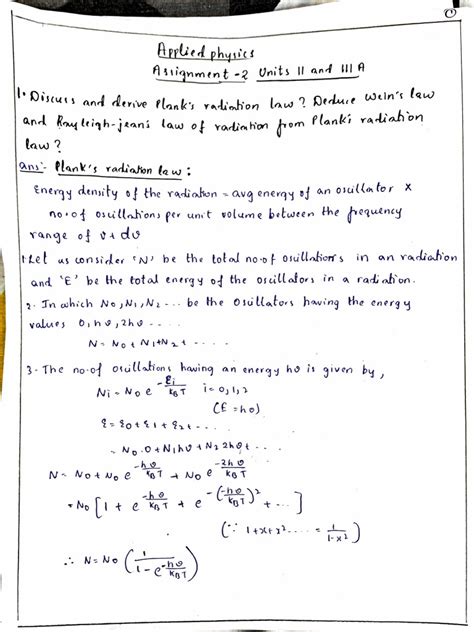 Applied physics
Assignment -2 Units II and III A
1. Discuss and derive Plank's radiation law? Deduce Wein's law
and Rayleigh-jean's law of radiation from Plank's radiation
law?
ans:- Plank's radiation law:
Energy density of the radiation = avg energy of an oscillator ×
no. of oscillations per unit volume between the frequency
range of ν+dν
1. Let us consider 'N' be the total no. of oscillations in an radiation
and 'E' be the total energy of the oscillators in a radiation.
2. In which N₀, N₁, N₂ ... be the oscillators having the energy
values 0, hν, 2hν ....
N = N₀ + N₁ + N₂ + ....
3. The no. of oscillations having an energy hν is given by,
Ni = N₀ e^(-Ei/(k_B T)) i = 0, 1, 2
(E = hν)
E = E₀ + E₁ + E₂ + ....
= N₀.0 + N₁hν + N₂2hν + ....
N = N₀ + N₀ e^(-hν/(k_B T)) + N₀ e^(-2hν/(k_B T))
= N₀ [1 + e^(-hν/(k_B T)) + e^-(-hν/(k_B T))² + ...]
(∵ 1+x+x² .... = 1/(1-x²))
∴ N = N₀ (1/(1 - e^(-hν/(k_B T))))